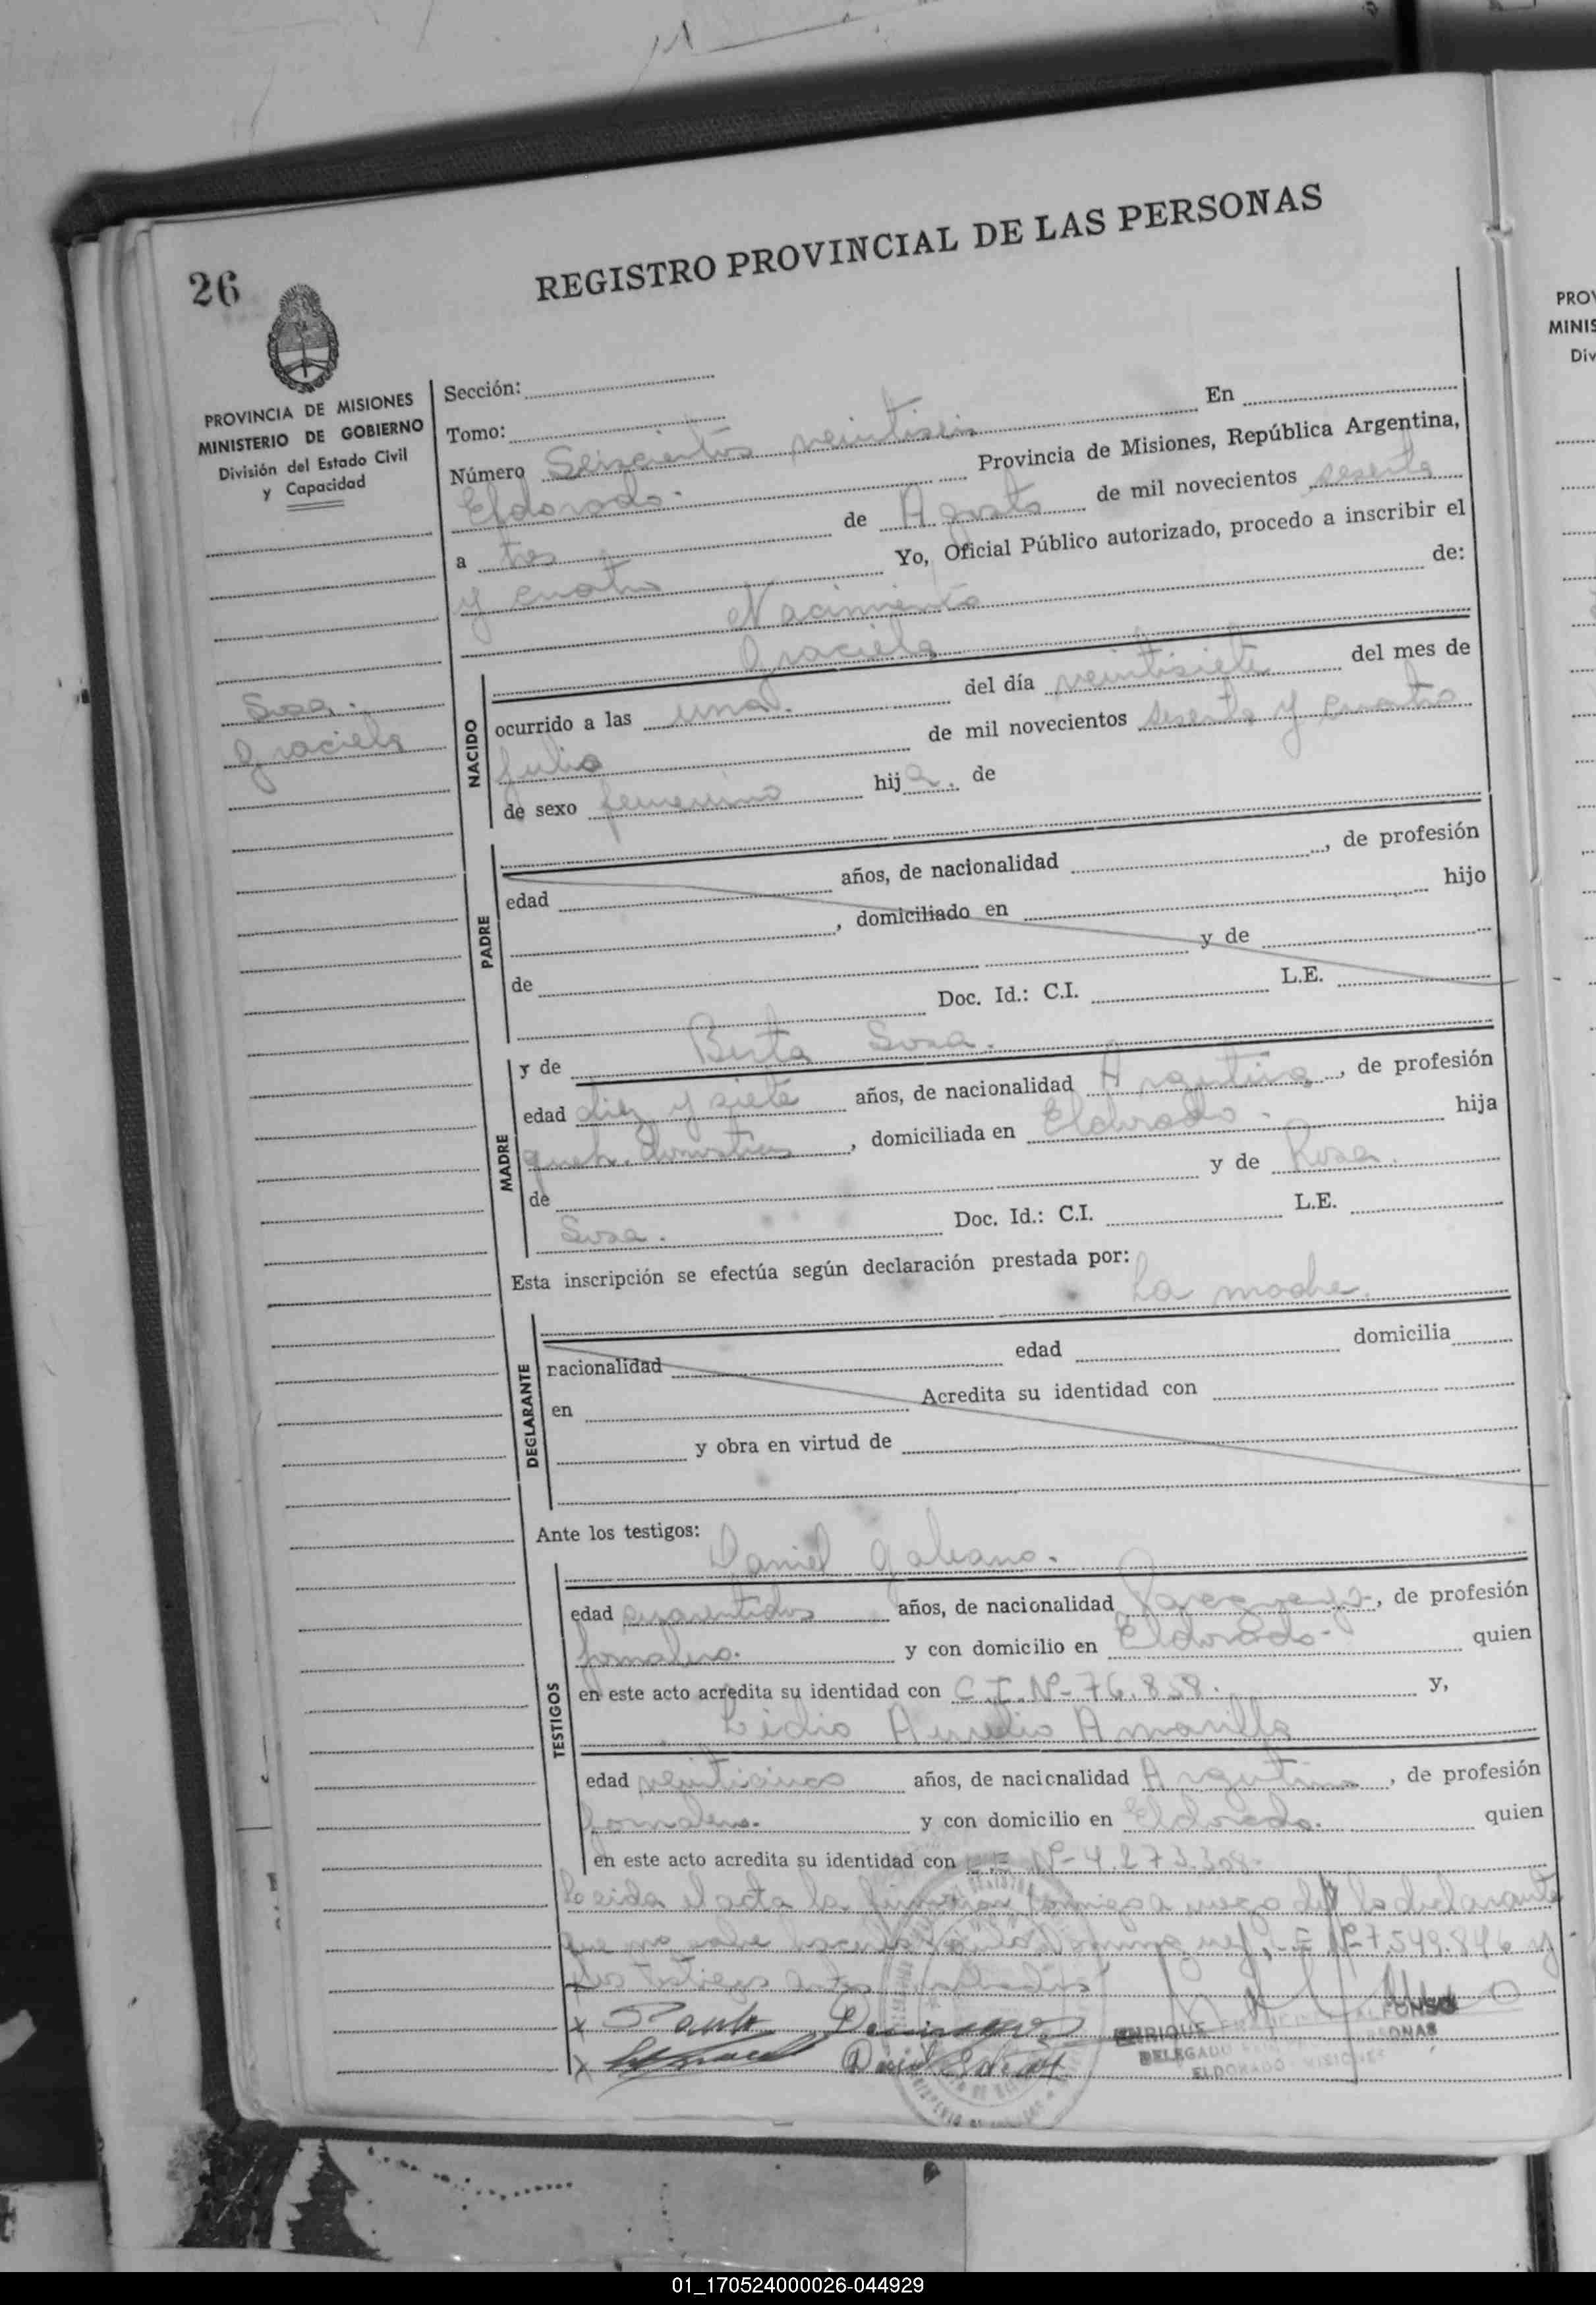 REGISTRO PROVINCIAL DE LAS PERSONAS
26
PROVINCIA DE MISIONES
MINISTERIO DE GOBIERNO
División del Estado Civil
y Capacidad
Sosa.
Graciela
Sección:
Tomo:
Número Seiscientos veintiseis En
Eldorado. Provincia de Misiones, República Argentina,
a tres de Agosto de mil novecientos sesenta
y cuatro Yo, Oficial Público autorizado, procedo a inscribir el
Nacimiento de:
Graciela
NACIDO
ocurrido a las una. del día veintisiete del mes de
Julio de mil novecientos sesenta y cuatro
de sexo femenino hija. de
PADRE
edad años, de nacionalidad , de profesión
, domiciliado en hijo
de y de
Doc. Id.: C.I. L.E.
MADRE
y de Berta Sosa.
edad diez y siete años, de nacionalidad Argentina, de profesión
queh. domesticos, domiciliada en Eldorado. hija
de y de Rosa.
Sosa. Doc. Id.: C.I. L.E.
Esta inscripción se efectúa según declaración prestada por:
La madre.
DECLARANTE
nacionalidad edad domicilia
en Acredita su identidad con
y obra en virtud de
Ante los testigos:
Daniel Galeano.
TESTIGOS
edad cuarentidos años, de nacionalidad Paraguayo, de profesión
jornalero. y con domicilio en Eldorado- quien
en este acto acredita su identidad con C.I. Nº- 76.858. y,
Lidio Aurelio Amarilla
edad veinticinco años, de nacionalidad Argentino, de profesión
jornalero. y con domicilio en Eldorado. quien
en este acto acredita su identidad con Nº-4.273.308.
Leida el acta la firman conmigo a ruego de la declarante
que no sabe hacerlo Nº 7.549.846 y
los testigos antes
Daniel Galeano
ENRIQUE FRANCISCO ALFONSO
DELEGADO PERSONAS
ELDORADO MISIONES
PROV
MINIS
Div
01_170524000026-044929